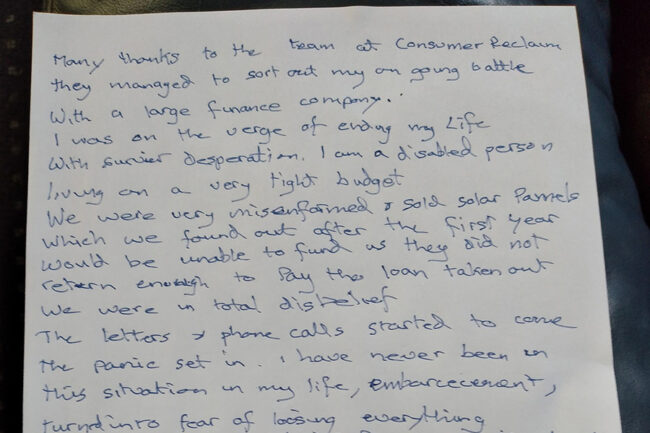 Many thanks to the team at Consumer Reclaim
they managed to sort out my on going battle
With a large finance company.
I was on the verge of ending my Life
With survier desperation. I am a disabled person
living on a very tight budget
We were very misenformed & sold solar Pannels
which we found out after the first year
would be unable to fund as they did not
retern enough to Pay the loan taken out
We were in total disbelief
The letters & phone calls started to come
the panic set in. I have never been in
this situation in my life, embarcecement,
turned into fear of loosing everything